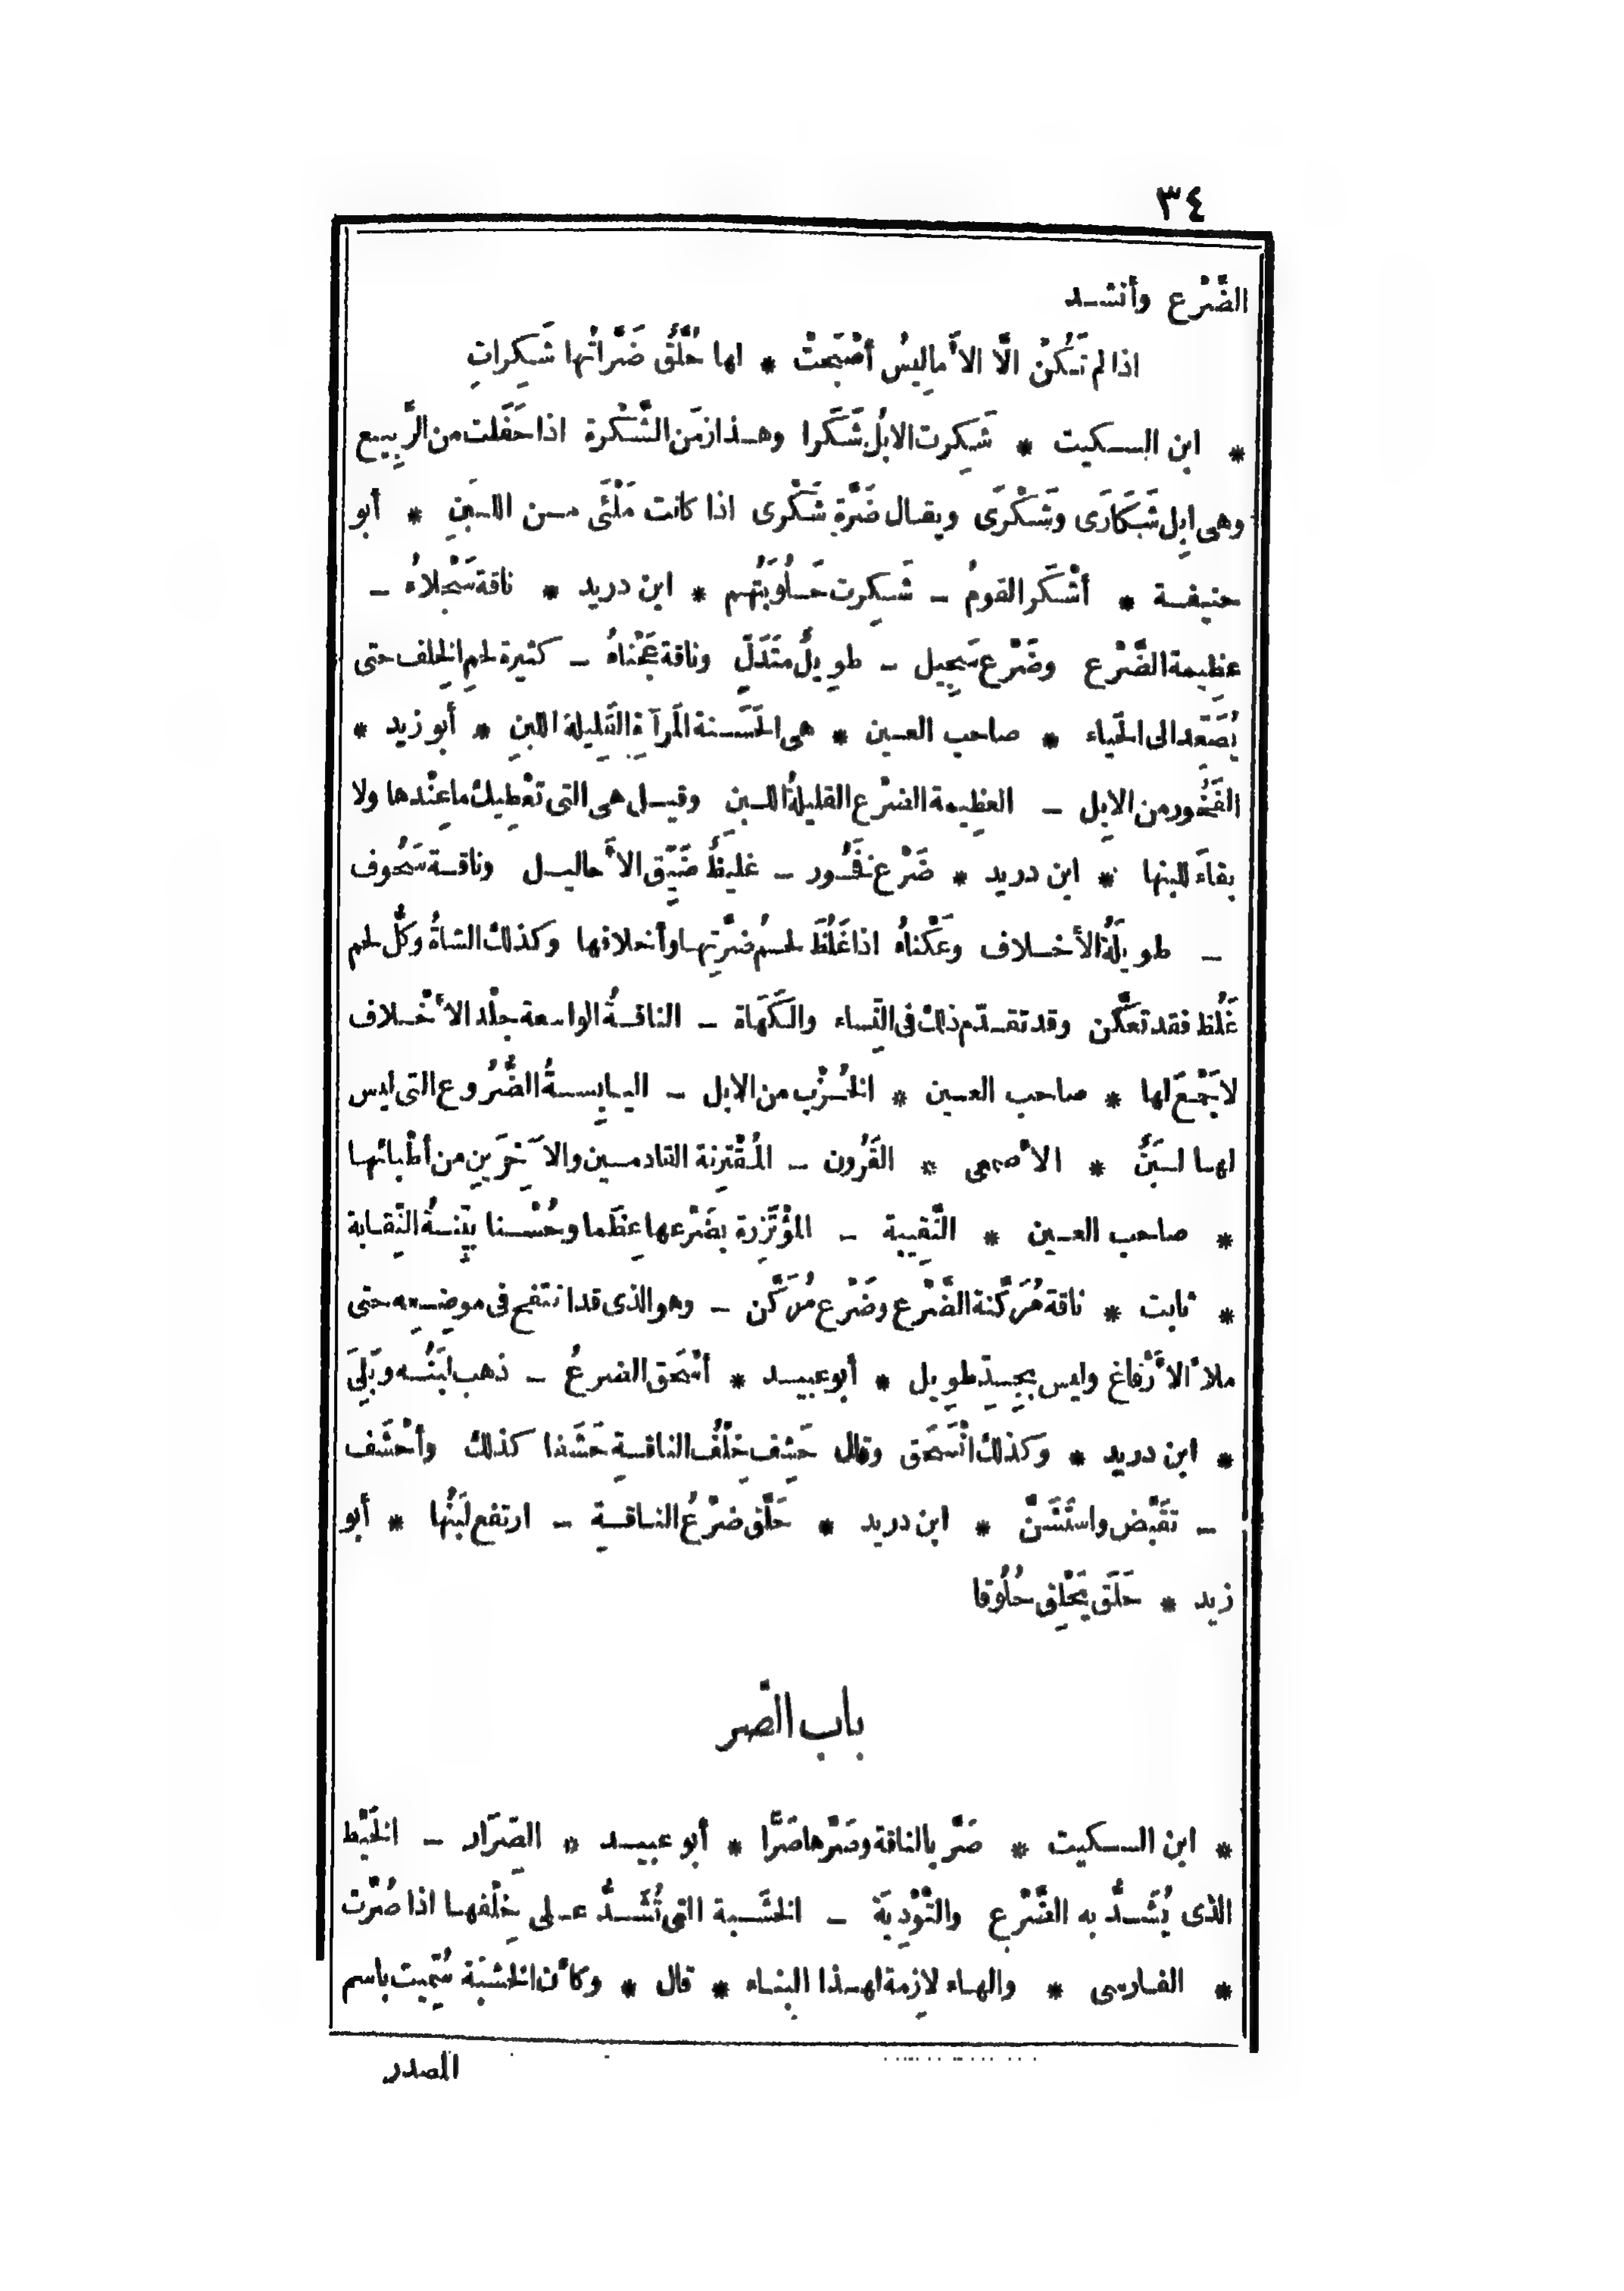 ٣٤
الضَّرْع وأنشد
اذا لم تَكُنْ الَّا الأَمالِيسُ أصْبَحتْ * لها حُلَّقٌ ضَرَّاتُها شَكِراتِ
* ابن السكيت * شَكِرت الابلُ شَكَرا وهذا زمَن الشَّكْرة اذا حَفَلت من الرَّبِيع
وهى ابِل شَكَارَى وشَكْرَى ويقال ضَرَّة شَكْرى اذا كانت مَلْئَى من اللبَنِ * أبو
حنيفة * أشْكَر القومُ - شَكِرت حَلُوبَتُهم * ابن دريد * ناقة سَجْلاءُ -
عظِيمة الضَّرْع وضَرْع سَجِيل - طوِيلٌ متَدَلٍّ وناقة عَجْناءُ - كثيرة لحمِ الخلف حتى
يُصَعِّد الى الحَياء * صاحب العين * هى الحَسَنة المَرآةِ القَلِيلة اللبنِ * أبو زيد *
الفَخُور من الابِل - العظِيمة الضرْع القليلةُ اللبن وقيل هى التى تعْطِيك ما عِنْدها ولا
بقاءَ للبنها * ابن دريد * ضَرْع فَخُور - غليظُ ضَيِّق الأَحاليل وناقة سَحُوف
- طوِيلةُ الأخلاف وعَكْناءُ اذا غَلُظَ لحمُ ضَرَّتِها وأخلافها وكذلك الشاةُ وكلُّ لحم
غَلُظ فقد تعَكَّن وقد تقدّم ذلك فى النِّساء والكَهَاة - الناقةُ الواسعة جِلْد الأَخْلاف
لا يَجْعَ لها * صاحب العين * الخُزْب من الابل - اليابِسةُ الضُّرُوع التى ليس
لها لَبَنٌ * الأصمعى * القَرُون - المُقْتَرِنة القادمين والآخِرَينِ من أطْبائها
* صاحب العين * النَّقِيبة - المؤْتَزِرة بضَرْعها عِظَما وحُسْنا بيِّنةُ النِّقابة
* ثابت * ناقة مُرَكَّنة الضَّرْع وضَرْع مُرَكَّن - وهو الذى قد انتفخ فى موضِعِه حتى
ملأ الأَرْفاغ وليس بجِدّ طوِيل * أبو عبيد * أسْحَق الضرعُ - ذهب لبَنُه وبَلِىَ
* ابن دريد * وكذلك انْسَحَق وقال حَشِف خِلْفُ الناقةِ حَشَفا كذلك وأحْشَف
- تقَبَّض واستَشَنَّ * ابن دريد * حَلَّق ضَرْعُ الناقةِ - ارتفع لبَنُها * أبو
زيد * حَلَق يَحْلِق حُلُوقا
باب الصّر
* ابن السكيت * صَرَّ بالناقة وصَرَّها صَرًّا * أبو عبيد * الصِّرَار - الخَيْط
الذى يُشَدُّ به الضَّرْع والتَّوْدِيَة - الخَشَبة التى تُشَدُّ على خِلْفها اذا صُرَّت
* الفارسى * والهاء لازِمة لهذا البِناء * قال * وكأن الخشَبَة سُمِّيت باسم
المصدر